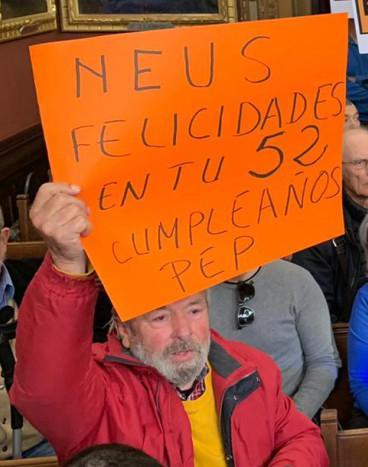 NEUS
FELICIDADES
EN TU 52
CUMPLEAÑOS
PEP